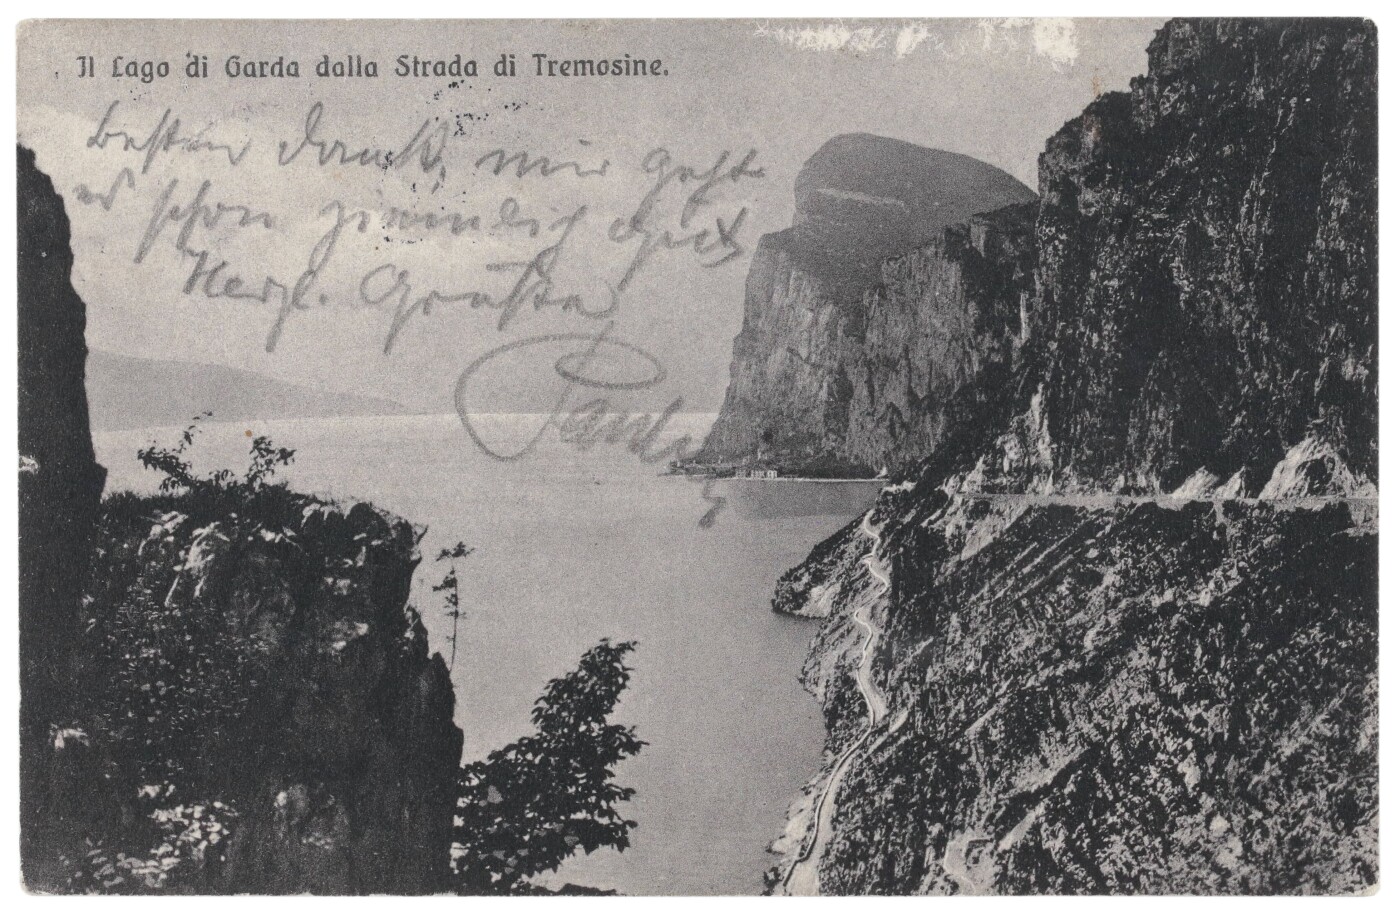 Il Lago di Garda dalla Strada di Tremosine.
Besten Dank, mir geht
es schon ziemlich gut
Herzl. Grüße